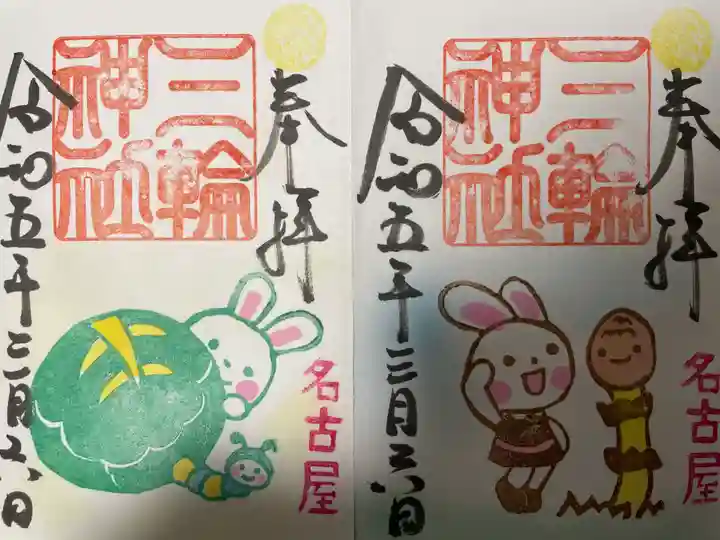 奉拝
三輪
神社
令和五年三月六日
名古屋
奉拝
三輪
神社
令和五年三月六日
名古屋